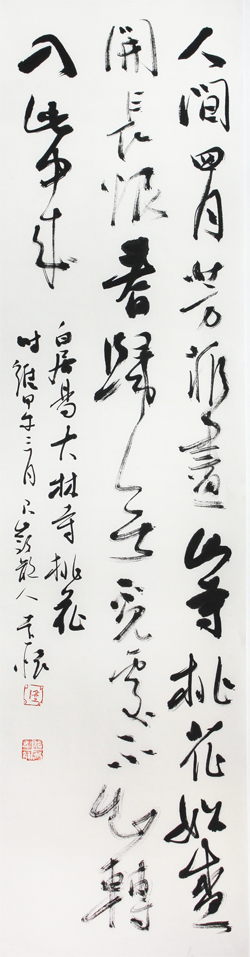 人間四月芳菲盡山寺桃花始盛
開長恨春歸無覓處不知轉
入此中來
白居易大林寺桃花
時維甲午三月 散人